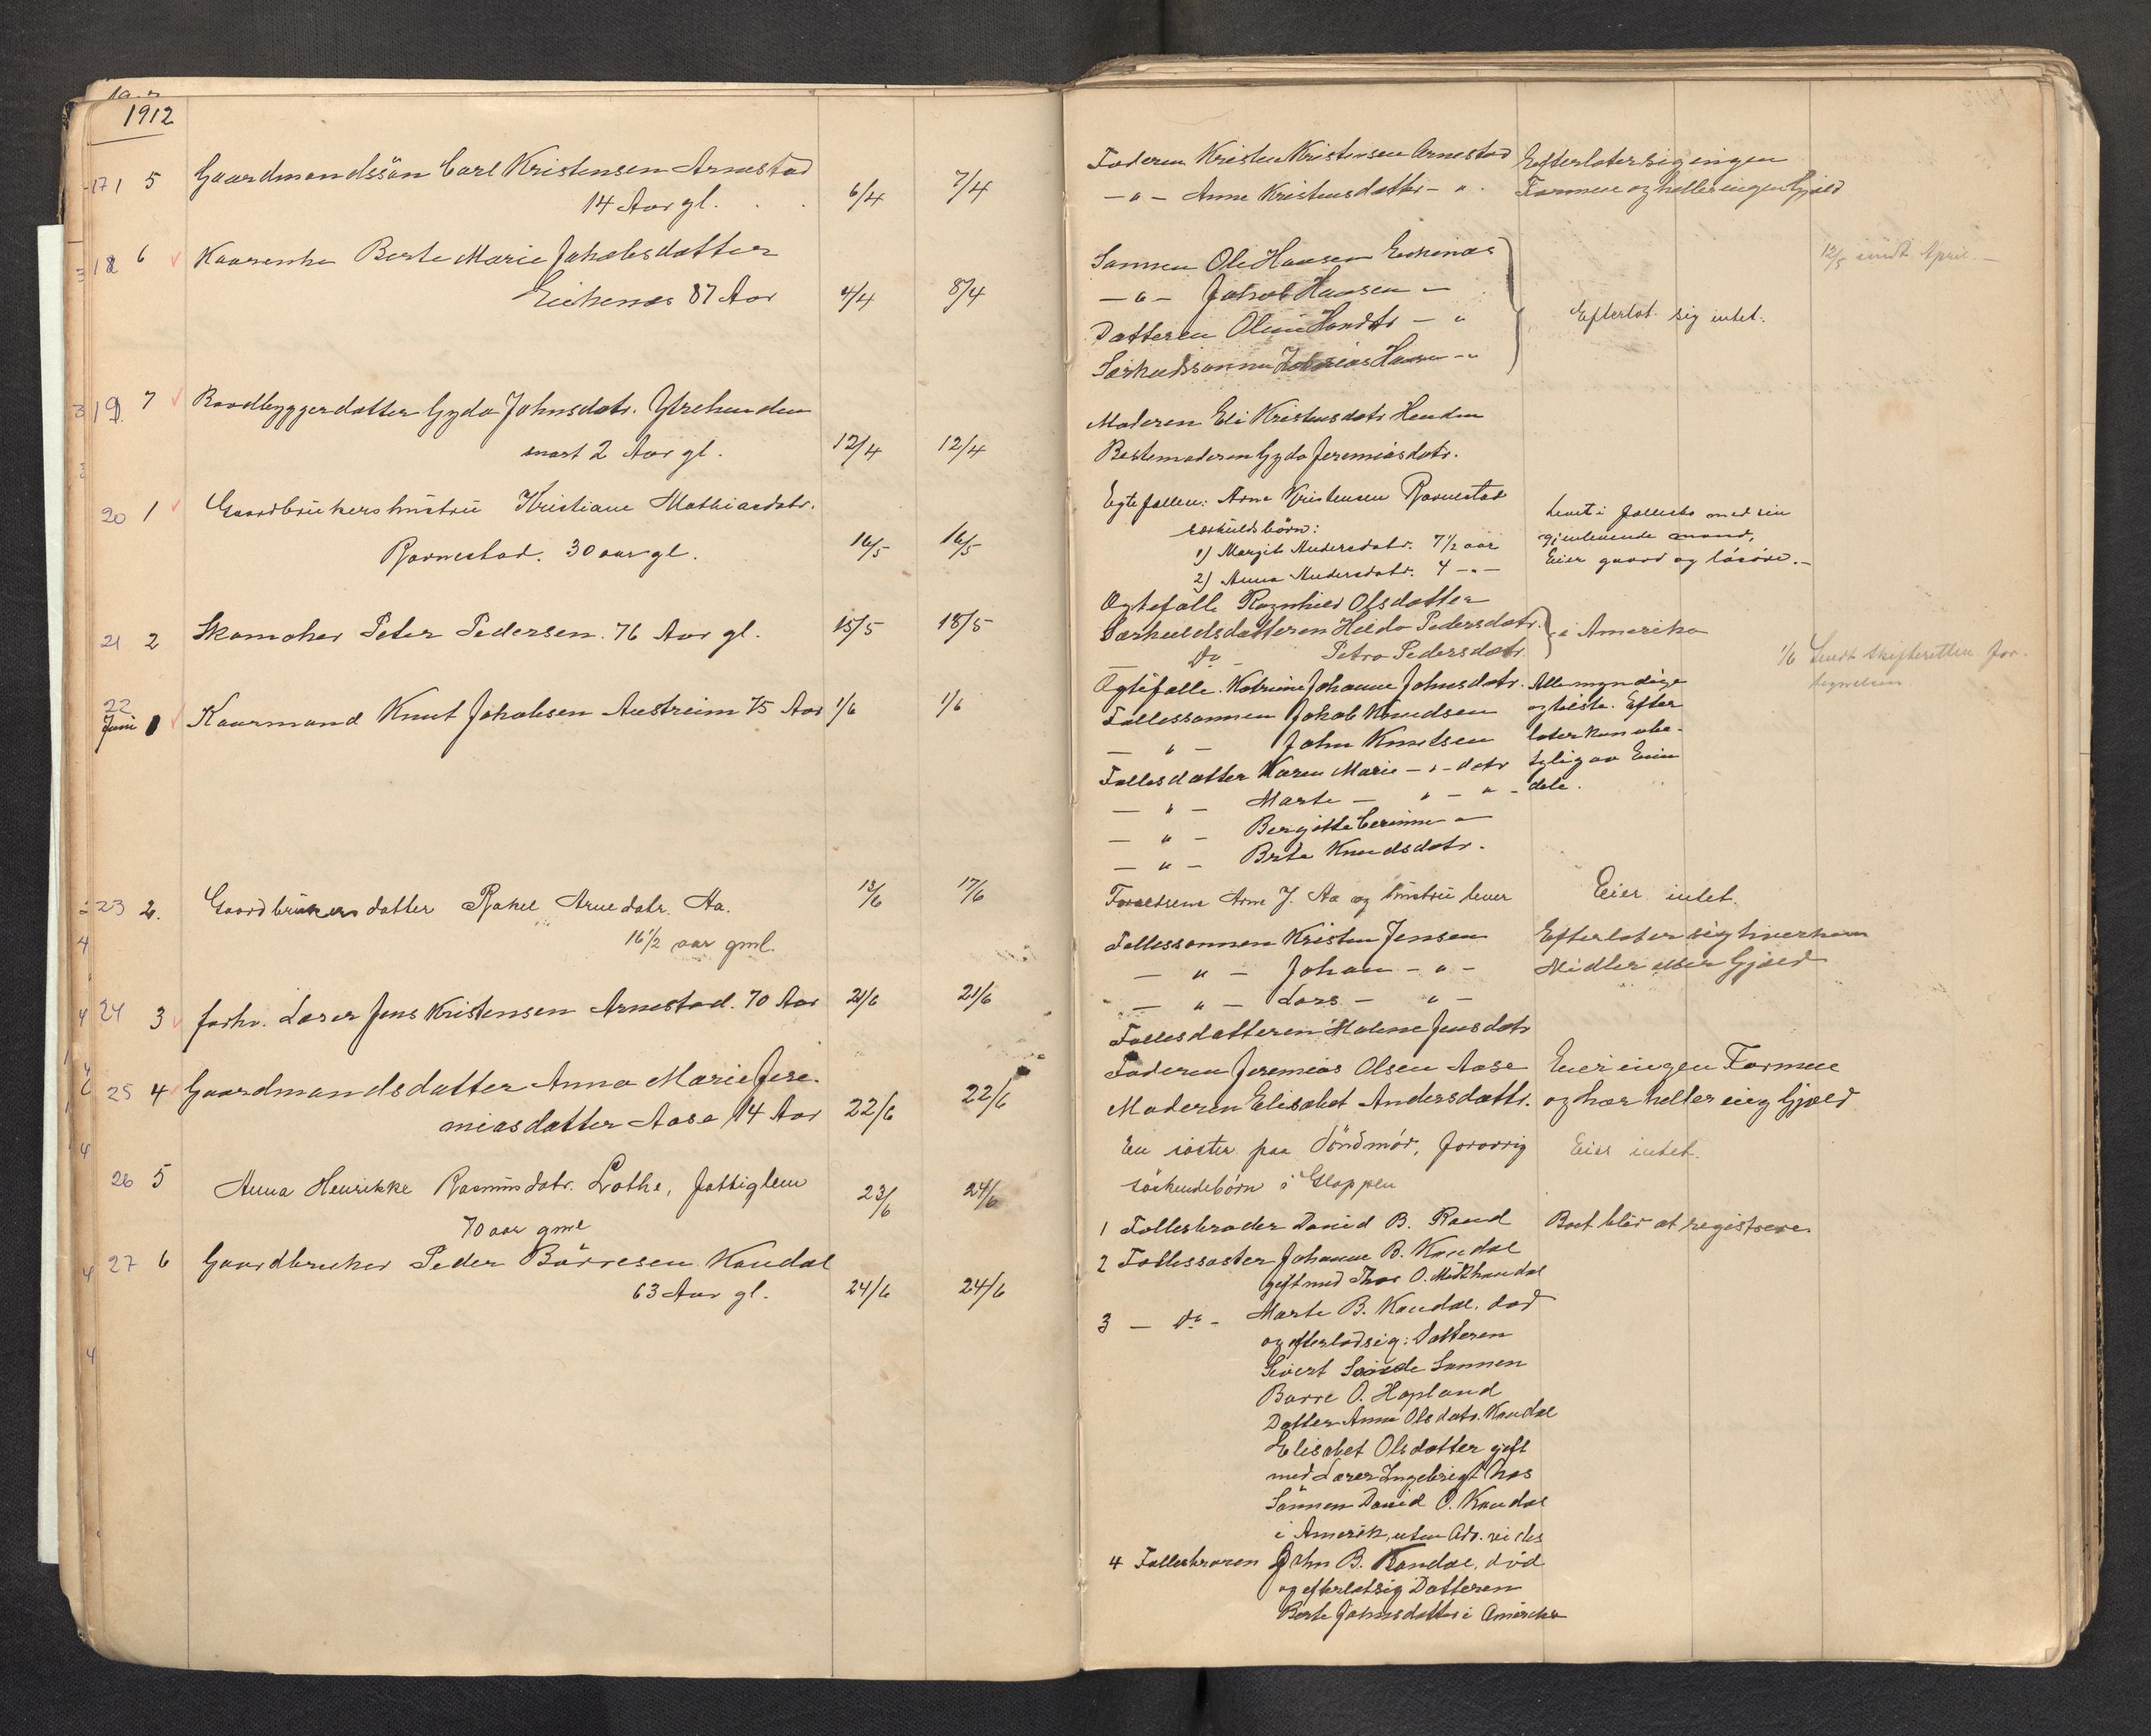 1912
17 1 5 Gaardmandssön Carl Kristensen Arnestad
14 Aar gl. 6/4 7/4
18 6 Kaarenke Berte Marie Jakobsdatter
Eikenæs 87 Aar 4/4 8/4
19 7 datter Gyda Johnsdatr. Ytrehenden
snart 2 Aar gl. 12/4 12/4
20 1 Gaardbrukershustru Kristiane Mathiasdatr.
30 aar gl. 16/5 16/5
21 2 Skomaker Peter Pedersen. 76 Aar gl. 15/5 18/5
22
Juni 1 Kaarmand Knut Jakobsen Austreim 75 Aar 1/6 1/6
23 2. Gaardbrukerdatter Rakel Arnedatr. Aa. 13/6 17/6
16 1/2 aar gml.
24 3 forhv. Lærer Jens Kristensen Arnestad. 70 Aar 21/6 21/6
25 4 Gaardmandsdatter Anna Marie Jere-
miasdatter Aase 14 Aar 22/6 22/6
26 5 Anna Henrikke Rasmusdatr. Lothe, fattiglem 23/6 24/6
70 aar gml
27 6 Gaardbruker Peder Börresen Kandal
63 Aar gl. 24/6 24/6
Faderen Kristen Kristensen Arnestad Efterlater sig ingen
— " — Anne Kristensdatter — " . Formue og heller ingen Gjæld
Sønnen Ole Hansen Eikenæs 12/5 sendt April. —
— " — Jakob Hansen —
Datteren Oline Hansdtr — " Efterlot sig intet.
Særkuldssønnen Hansen — "
Moderen Eli Kristensdatr Henden
Bestemoderen Gyda Jeremiasdatr.
Egtefællen: Arne Kristensen
særkuldsbörn: Levet i fællesbo med sin
1) Margit Andersdatr. 7 1/2 aar gjenlevende mand,
2) Anna Andersdatr. 4 — " — Eier gaard og lösöre. —
Ægtefælle Ragnhild Olsdatter
Særkuldsdatteren Hilda Pedersdatr. i Amerika
Do — Petra Pedersdatr. 1/6 Sendt Skifteretten for-
tegnelsen
Ægtefælle. Katrine Johanne Johnsdatr. Alle myndige
Fællessønnen Jakob Knudsen og Efter
— " — John Knudsen later kun ube-
Fællesdatter Karen Marie — " — datr tylig av Eien
— " — Marte — " — " — dele.
— " — Bergitte —
— " — Brite Knudsdatr.
Forældrene Arne J. Aa og hustru lever Eier intet.
Fællessønnen Kristen Jensen Efterlater sig hverken
— " — Johan — " — Midler eller Gjæld
— " — Lars — " —
Fællesdatteren Malene Jensdatr
Faderen Jeremias Olsen Aase Eier ingen Formue
Moderen Elisabet Andersdattr. og har heller eing Gjæld
En söster paa Söndmör, forövrig Eier intet.
söskendebörn i Gloppen
1 Fællesbroder David B. Rand Boet blir at registrere
2 Fællessøster Johanne B. Kandal
gift med Thor O. Midtkandal
3 — Do — Marte B. Kandal, död
og efterlod sig: Datteren
Sivert Sønnen
Børre O. Hopland
Datter Anna Olsdatr. Kandal
Elisabet Olsdatter gift
med Lærer Ingebrigt
Sönnen David O. Kandal
i Amerik, uten Adr. vides
4 Fællesbroren John B. Kandal, död
og efterlot sig Datteren
Berte Johnsdatter i Amerika